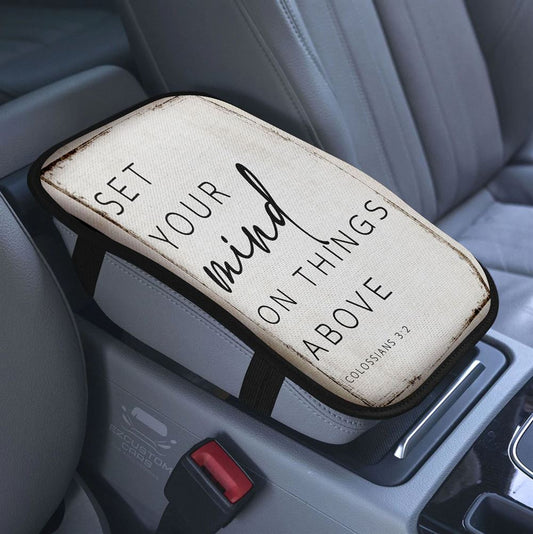 SET
YOUR
mind
ON THINGS
ABOVE
COLOSSIANS 3:2
EZCUSTOM
CARS